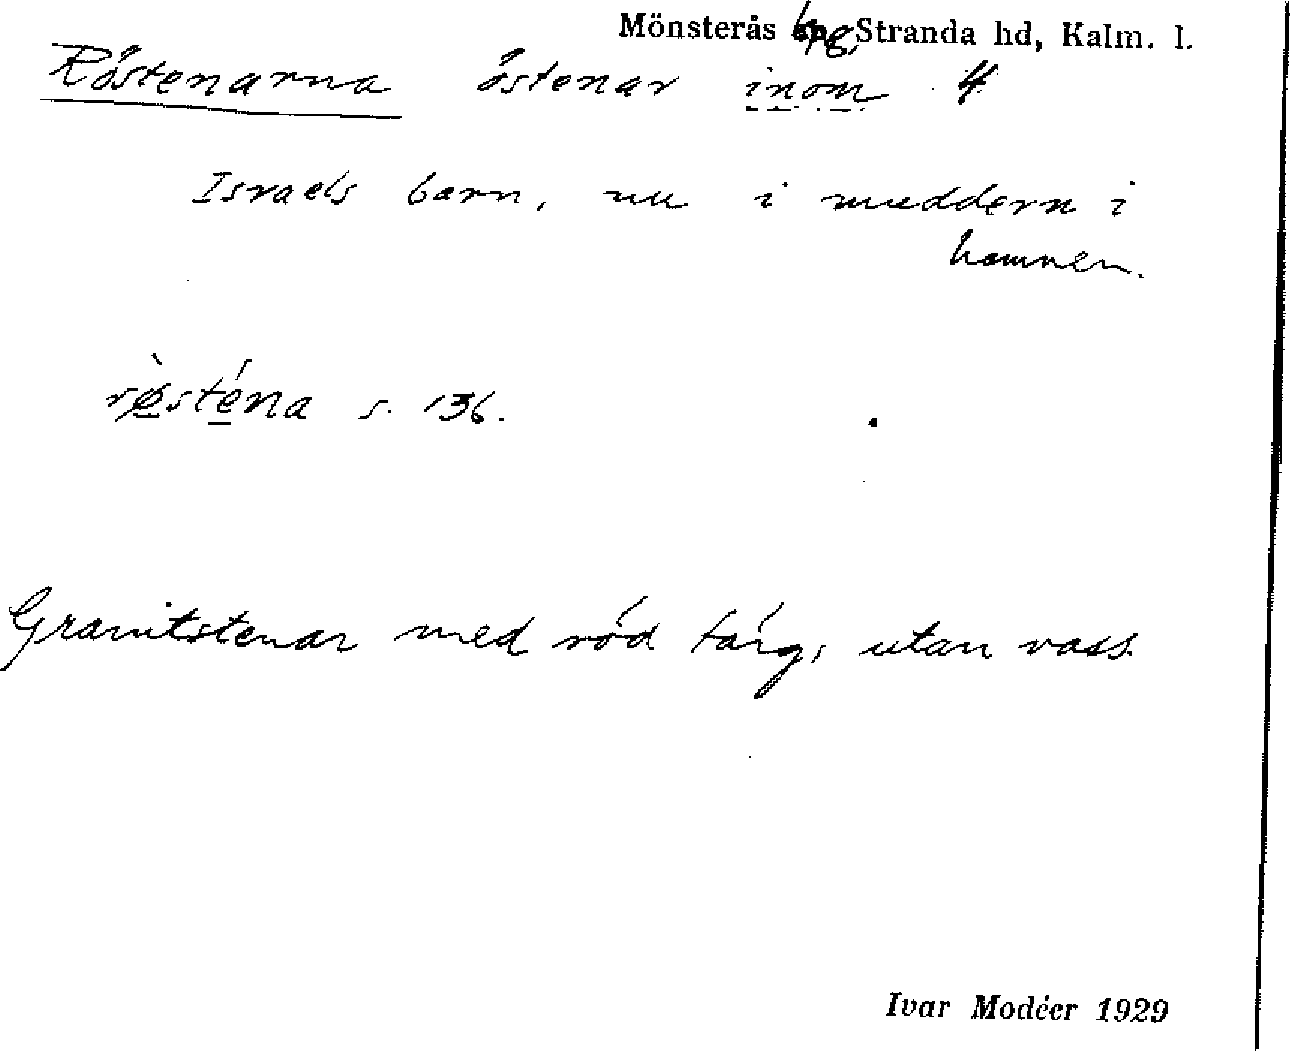 Mönsterås kpg Stranda hd, Kalm. l.
Röstenarna östenar inom 4
Israels barn, nu i muddern i
hamnen.
rösténa s. 136.
Granitstenar med röd färg, utan vass.
Ivar Modéer 1929